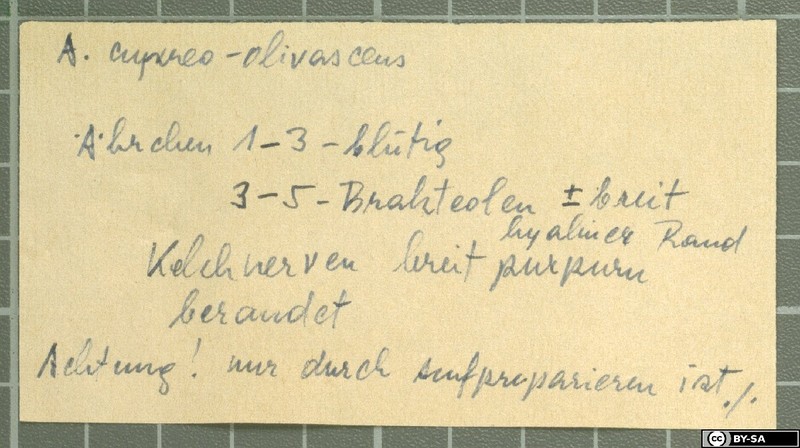 A. cupreo-olivascens
Ährchen 1-3-blütig
3-5-Brakteolen ± breit
hyaliner Rand
Kelchnerven breit purpurn
berandet
Achtung! nur durch Aufpräparieren ist ./.
BY-SA